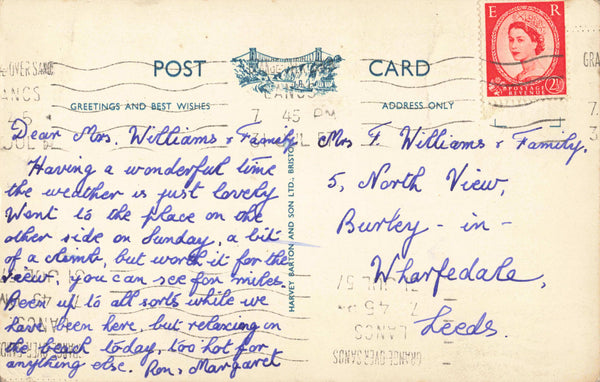 POST CARD
E R
POSTAGE REVENUE
2½D
GREETINGS AND BEST WISHES
ADDRESS ONLY
GRANGE-OVER-SANDS
LANCS
7.45 PM
31 JUL 57
Dear Mrs. Williams & Family
Having a wonderful time
the weather is just lovely
Went to the place on the
other side on Sunday, a bit
of a climb, but worth it for the
view, you can see for miles.
Been up to all sorts while we
have been here, but relaxing on
the beach today, too hot for
anything else. Ron, Margaret
HARVEY BARTON AND SON LTD., BRISTOL
Mrs F. Williams & Family.
5, North View,
Burley - in -
Wharfedale,
Leeds.
JUL 57
7.45
LANCS
GRANGE-OVER-SANDS